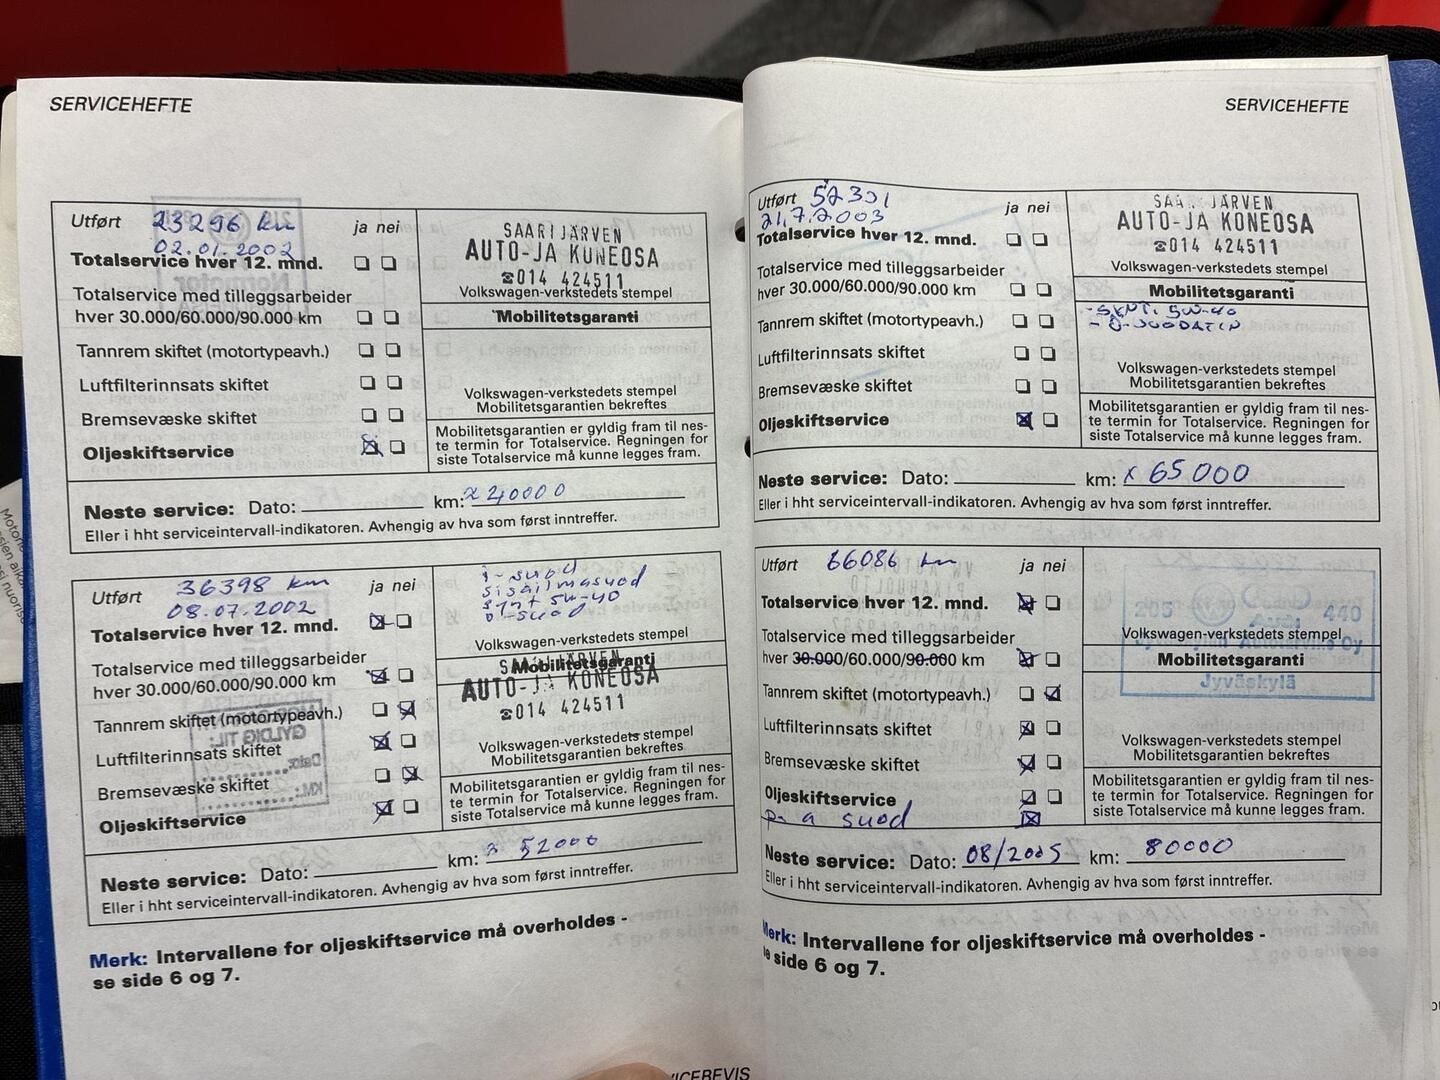 SERVICEHEFTE
Utført 23296 km
02.01.2002
ja nei
Totalservice hver 12. mnd.
Totalservice med tilleggsarbeider
hver 30.000/60.000/90.000 km
Tannrem skiftet (motortypeavh.)
Luftfilterinnsats skiftet
Bremsevæske skiftet
Oljeskiftservice
SAARIJÄRVEN
AUTO-JA KONEOSA
☎014 424511
Volkswagen-verkstedets stempel
Mobilitetsgaranti
Volkswagen-verkstedets stempel
Mobilitetsgarantien bekreftes
Mobilitetsgarantien er gyldig fram til nes-
te termin for Totalservice. Regningen for
siste Totalservice må kunne legges fram.
Neste service: Dato: km: 40000
Eller i hht serviceintervall-indikatoren. Avhengig av hva som først inntreffer.
Utført 36398 km
08.07.2002
ja nei
Totalservice hver 12. mnd.
Totalservice med tilleggsarbeider
hver 30.000/60.000/90.000 km
Tannrem skiftet (motortypeavh.)
Luftfilterinnsats skiftet
Bremsevæske skiftet
Oljeskiftservice
i-suod
sisäilmasuod
synt 5w-40
ö-suod
Volkswagen-verkstedets stempel
Mobilitetsgaranti
SAARIJÄRVEN
AUTO-JA KONEOSA
☎014 424511
Volkswagen-verkstedets stempel
Mobilitetsgarantien bekreftes
Mobilitetsgarantien er gyldig fram til nes-
te termin for Totalservice. Regningen for
siste Totalservice må kunne legges fram.
Neste service: Dato: km: 52000
Eller i hht serviceintervall-indikatoren. Avhengig av hva som først inntreffer.
Merk: Intervallene for oljeskiftservice må overholdes -
se side 6 og 7.
SERVICEHEFTE
Utført 52301
21.7.2003
ja nei
Totalservice hver 12. mnd.
Totalservice med tilleggsarbeider
hver 30.000/60.000/90.000 km
Tannrem skiftet (motortypeavh.)
Luftfilterinnsats skiftet
Bremsevæske skiftet
Oljeskiftservice
SAARIJÄRVEN
AUTO-JA KONEOSA
☎014 424511
Volkswagen-verkstedets stempel
Mobilitetsgaranti
5W-40
- Ö-SUODATIN
Volkswagen-verkstedets stempel
Mobilitetsgarantien bekreftes
Mobilitetsgarantien er gyldig fram til nes-
te termin for Totalservice. Regningen for
siste Totalservice må kunne legges fram.
Neste service: Dato: km: x 65000
Eller i hht serviceintervall-indikatoren. Avhengig av hva som først inntreffer.
Utført 66086 km
ja nei
Totalservice hver 12. mnd.
Totalservice med tilleggsarbeider
hver 30.000/60.000/90.000 km
Tannrem skiftet (motortypeavh.)
Luftfilterinnsats skiftet
Bremsevæske skiftet
Oljeskiftservice
suod
205 Audi 440
Volkswagen-verkstedets stempel
Oy
Mobilitetsgaranti
Jyväskylä
Volkswagen-verkstedets stempel
Mobilitetsgarantien bekreftes
Mobilitetsgarantien er gyldig fram til nes-
te termin for Totalservice. Regningen for
siste Totalservice må kunne legges fram.
Neste service: Dato: 08/2005 km: 80000
Eller i hht serviceintervall-indikatoren. Avhengig av hva som først inntreffer.
Merk: Intervallene for oljeskiftservice må overholdes -
se side 6 og 7.